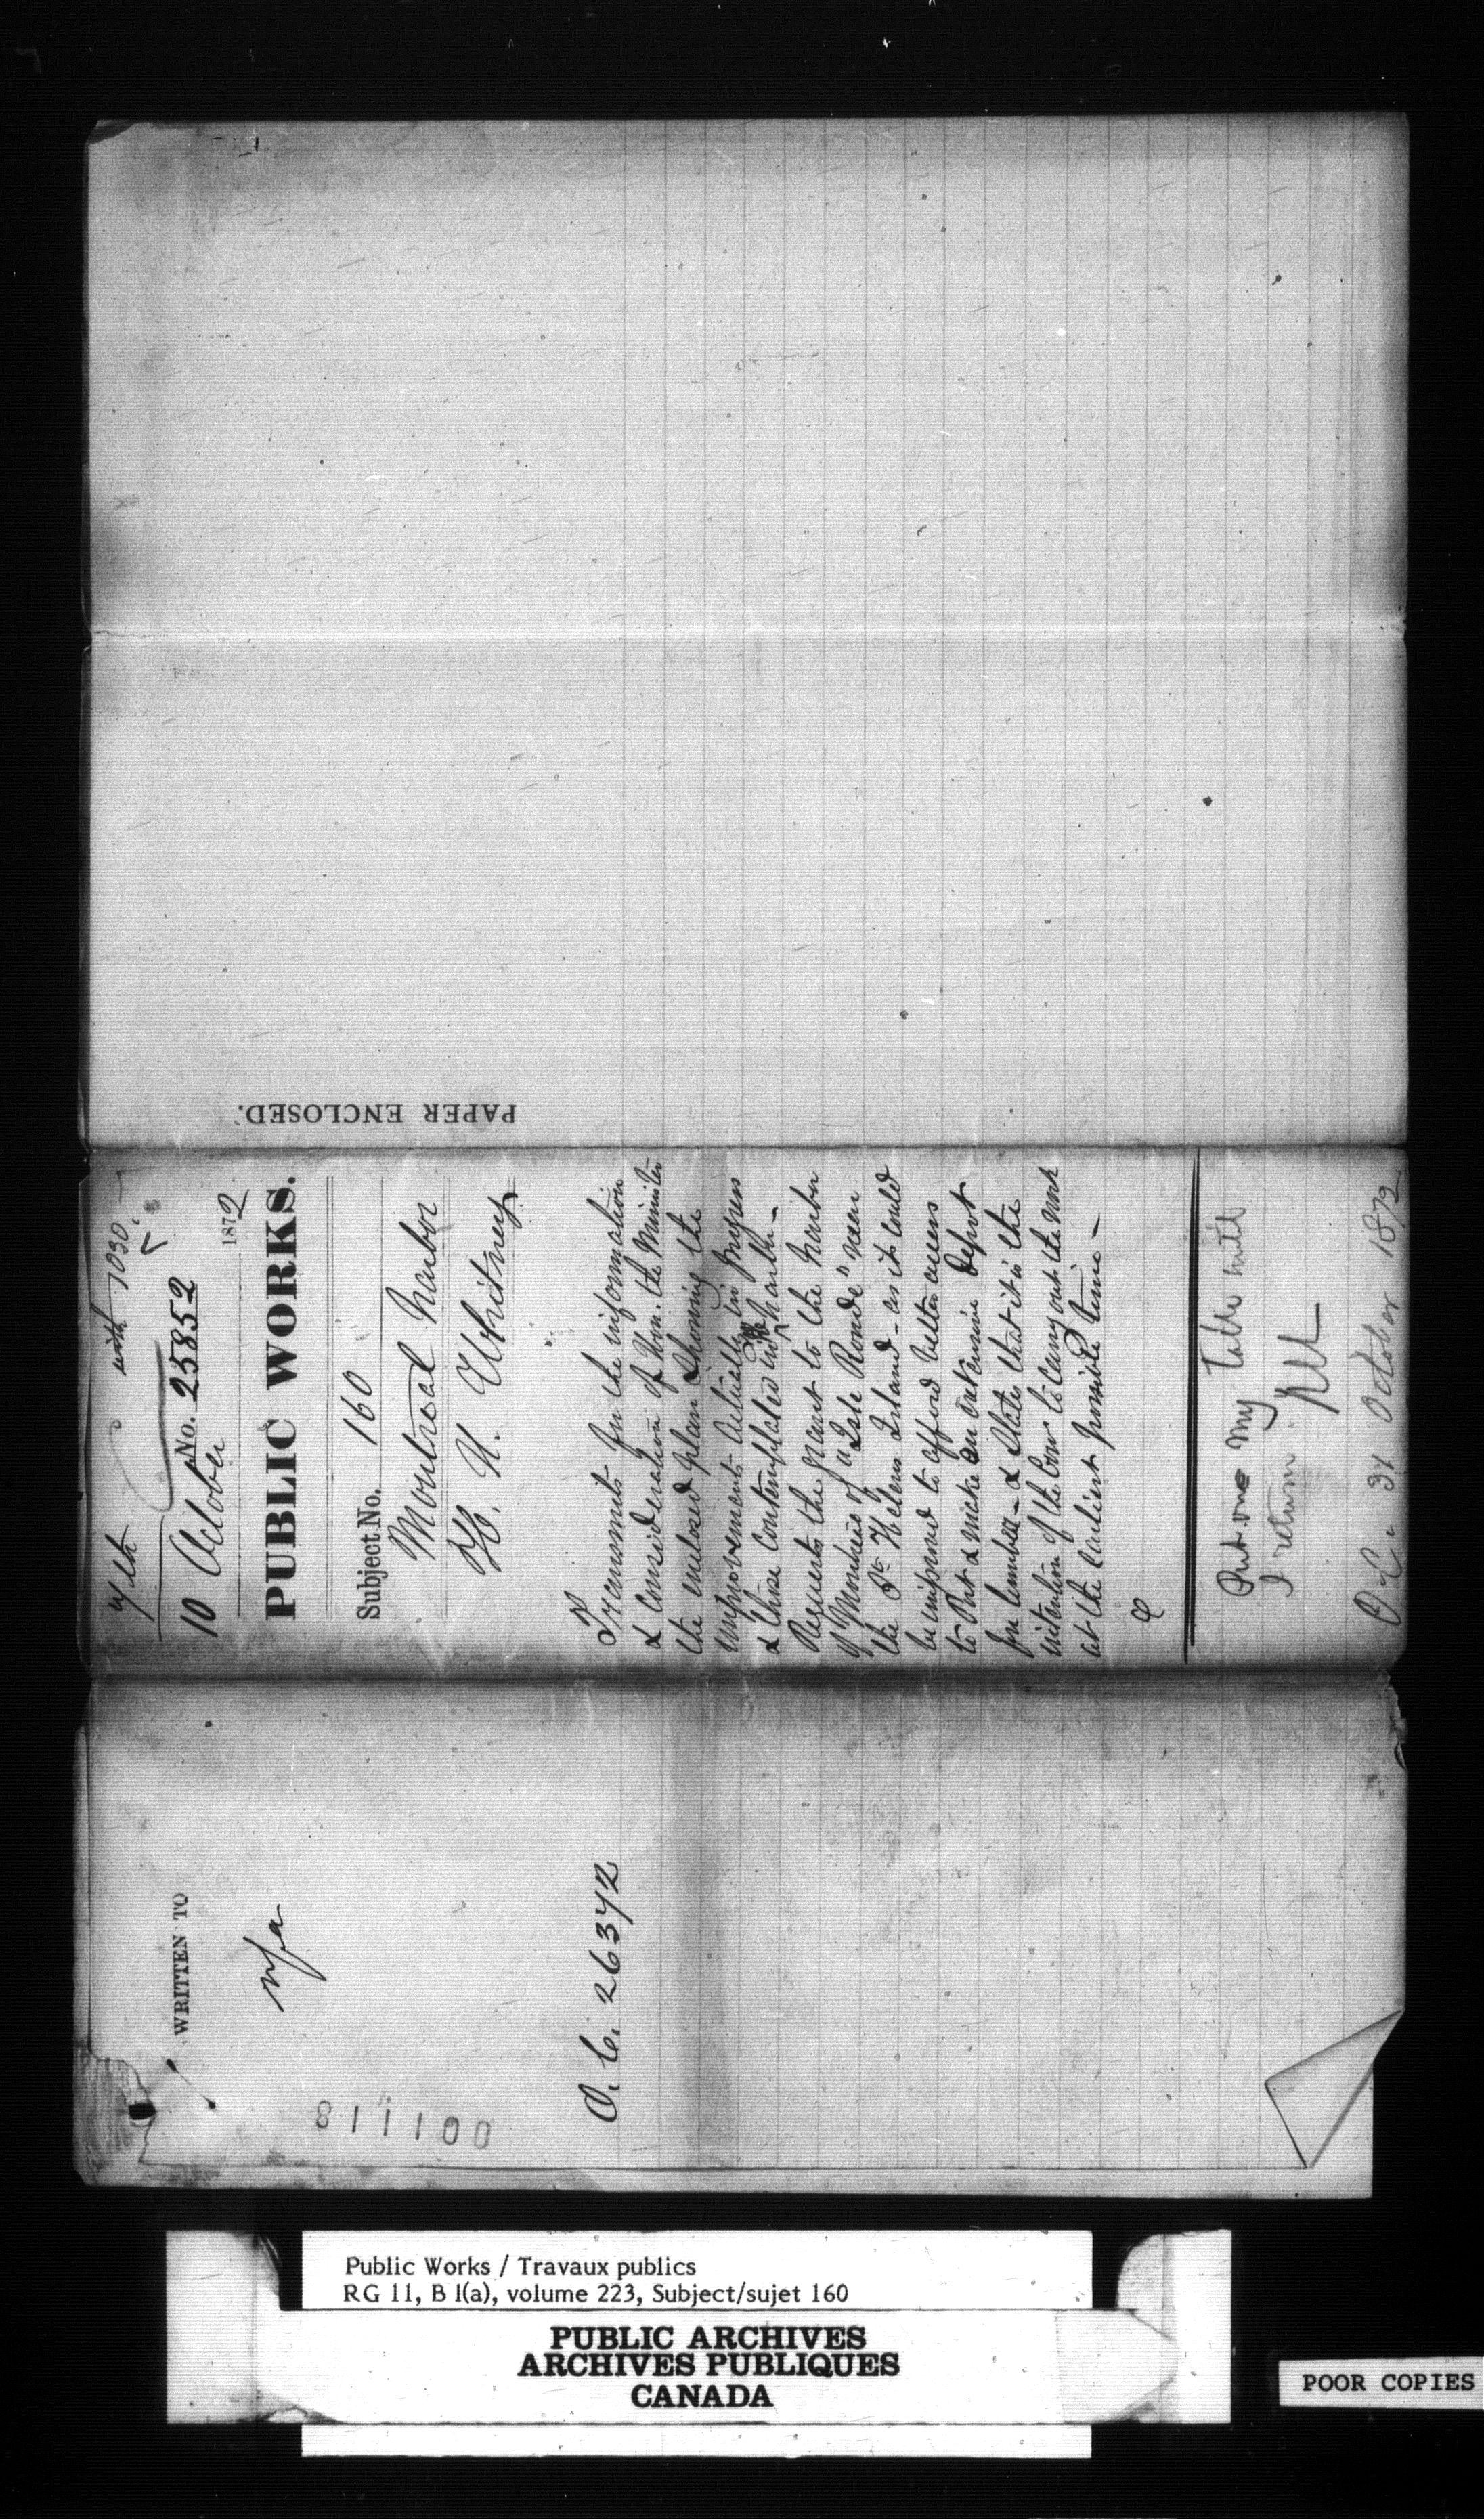 7th
with 7030
No. 25852
10 October 1872
PUBLIC WORKS.
Subject No. 160
Montreal Harbor
H. N. Whitney
Transmits for the information
& Consideration of Hon. the Minister
the enclosed plan showing the
improvements actually in progress
& those contemplated in the harbor –
Requests the grant to the Harbor
of Montreal of "Isle Ronde" near
the St. Helens Island – as it could
be improved to afford better access
to Port & make an extensive depot
for lumber – & States that it is the
intention of the Com to carry out the work
at the earliest possible time –
Put on my Table until
I return.
O.C. 31 October 1872
PAPER ENCLOSED.
WRITTEN TO
nfa
O.C. 26372
811100
Public Works / Travaux publics
RG 11, B 1(a), volume 223, Subject/sujet 160
PUBLIC ARCHIVES
ARCHIVES PUBLIQUES
CANADA
POOR COPIES